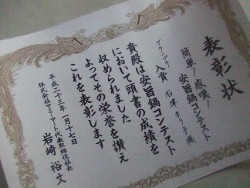 表彰状
簡単!感嘆!
安旨鍋コンテスト
入賞
貴殿は安旨鍋コンテスト
において頭書の成績を
収められました
よってその栄誉を讃え
これを表彰します
平成二十三年一月二十七日
岩崎裕文